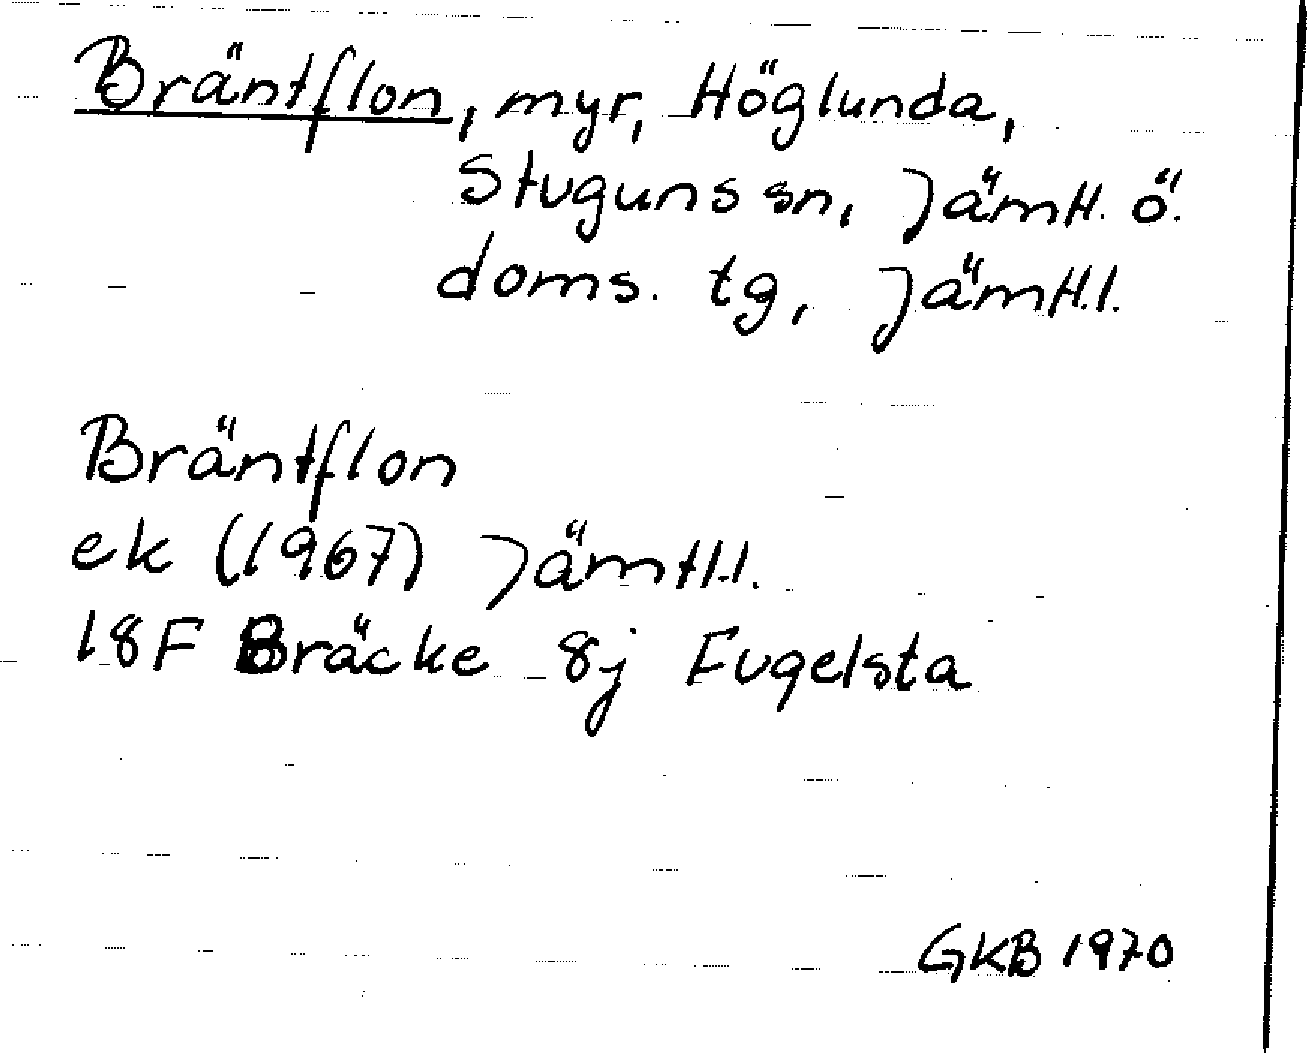 Bräntflon, myr, Höglunda,
Stuguns sn, Jämtl. ö.
doms. tg, Jämtl.l.
Bräntflon
ek (1967) Jämtl.l.
18F Bräcke 8j Fugelsta
GKB 1970